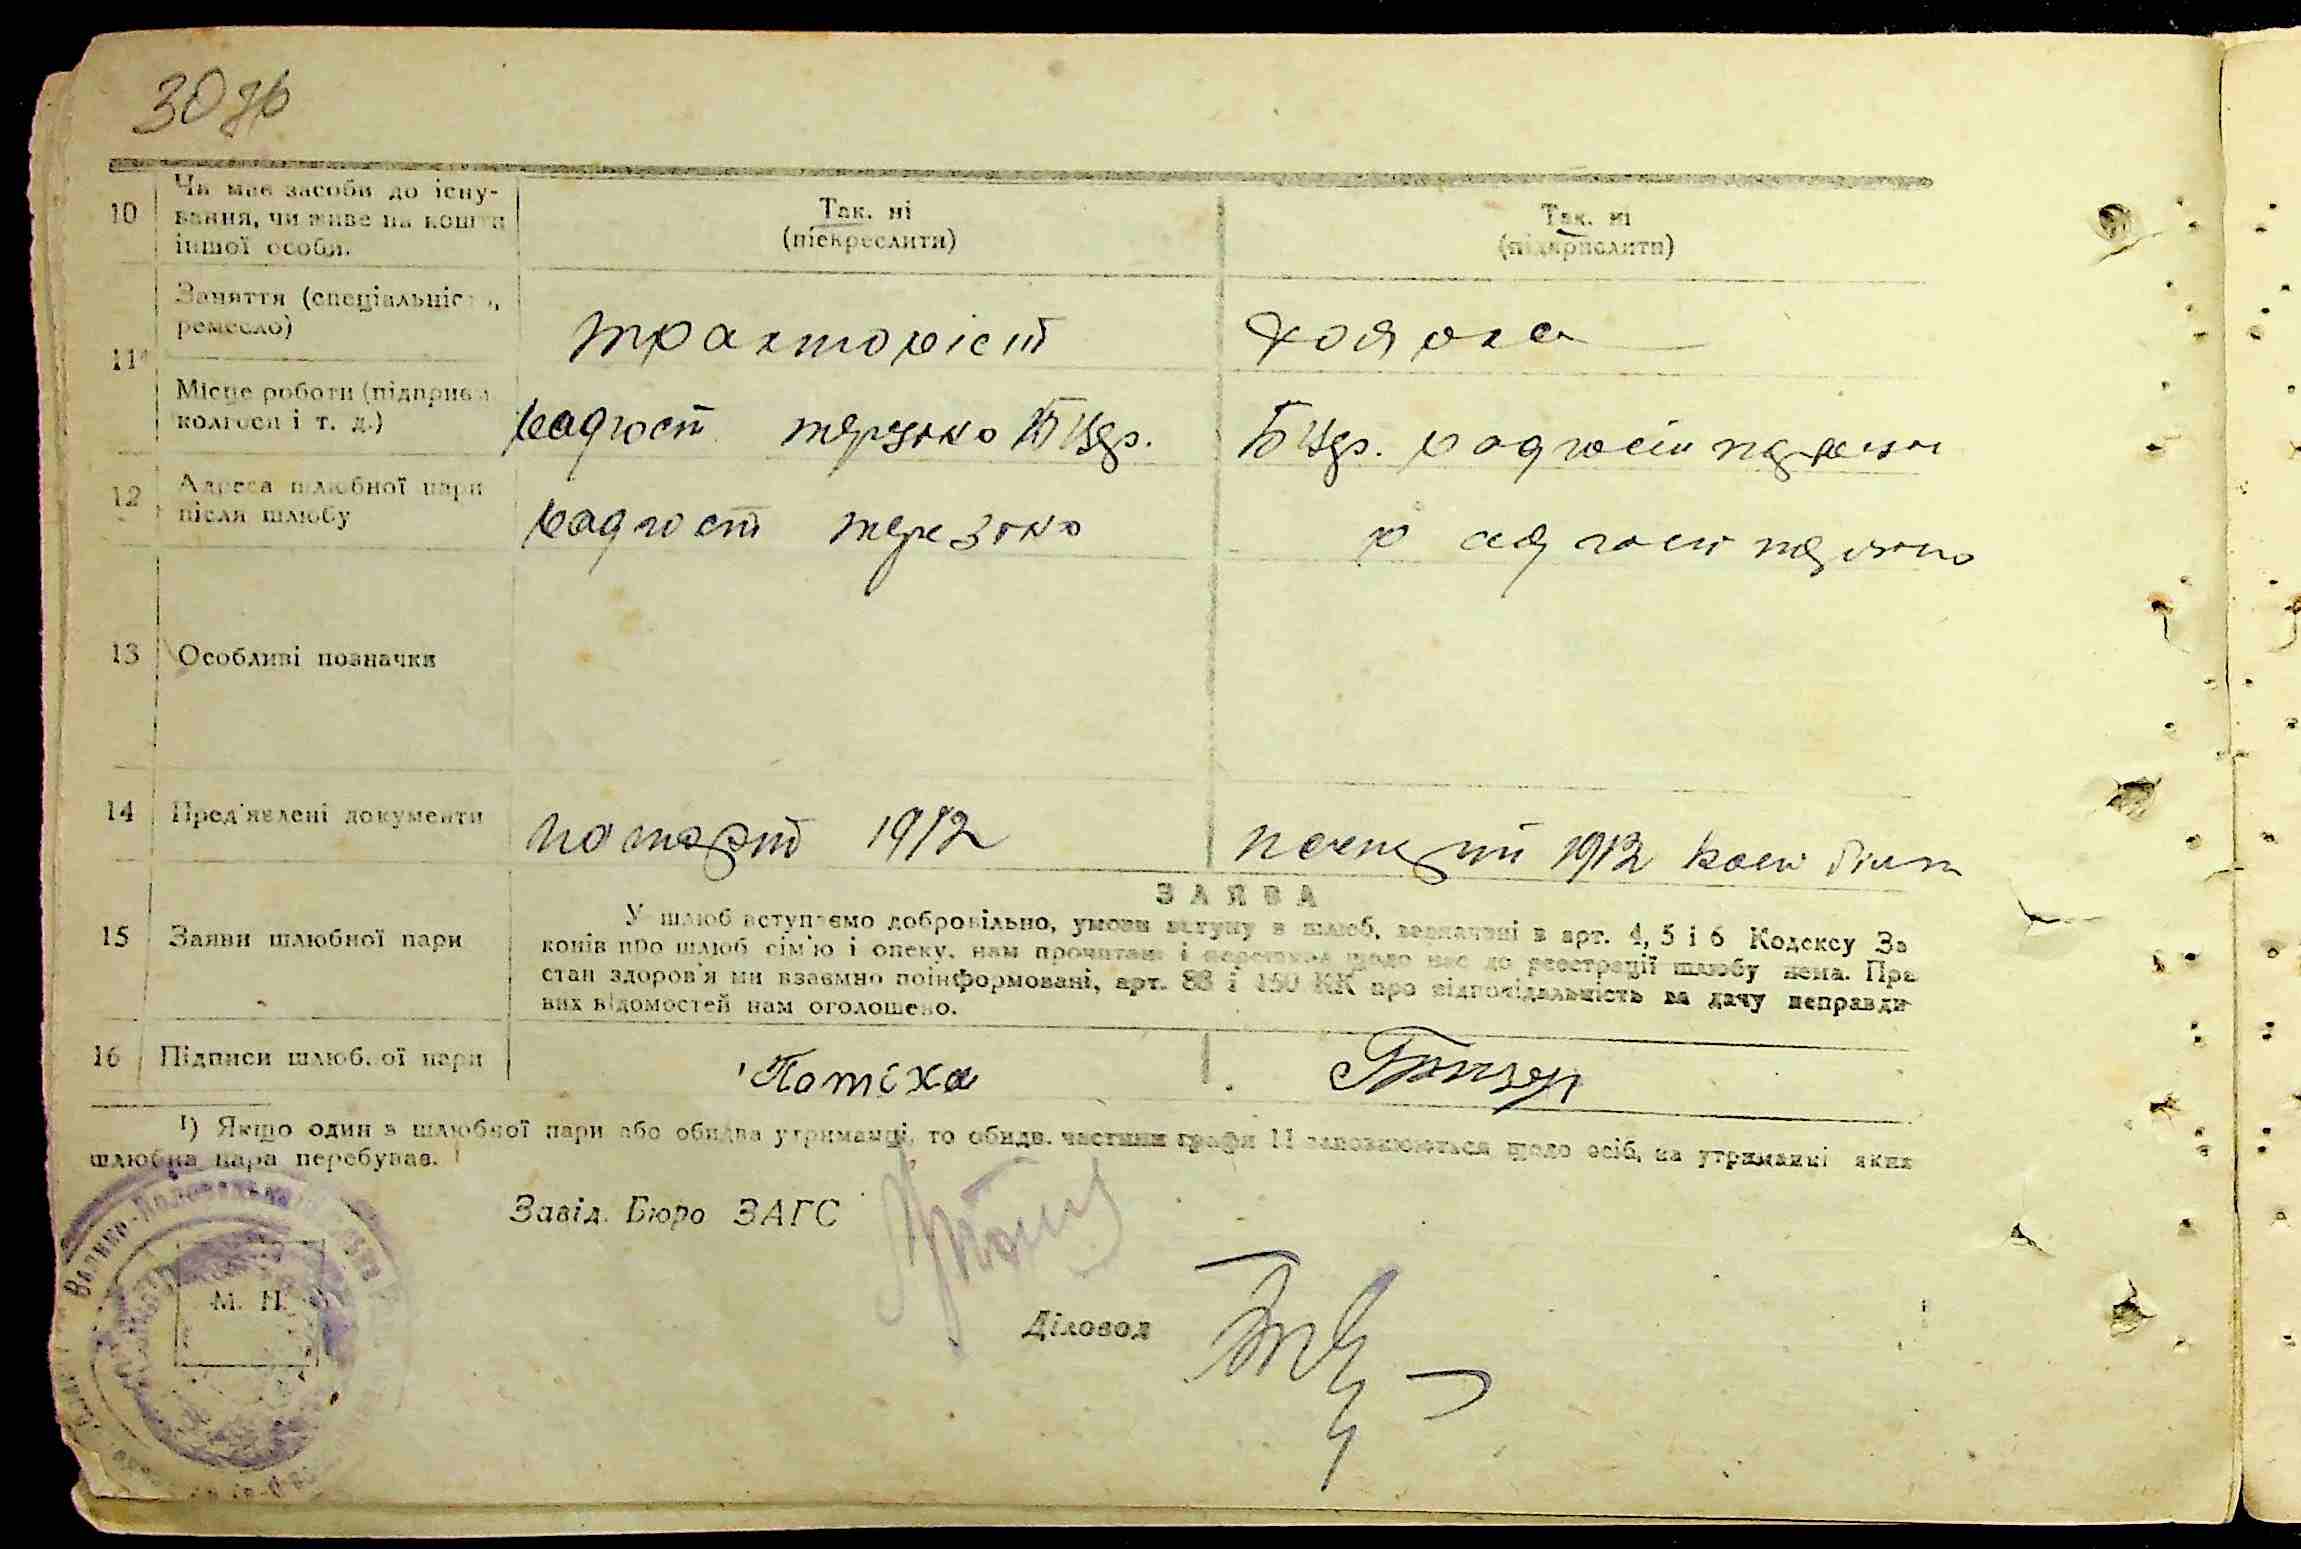 30 зв
10 Чи має засоби до існування, чи живе на кошти іншої особи.
Так. ні
(піскреслити)
Так. ні
(підкрислити)
11¹
Заняття (спеціальність, ремесло)
тракторіст
доярка
Місце роботи (підприєм колгосп і т. д.)
радгост
Бцдр.
Бцдр. радгосп
12 Адреса шлюбної пари після шлюбу
радгост
радгосп
13 Особливі позначки
14 Пред'явлені документи
1912
паспорт 1912
15 Заяви шлюбної пари
ЗАЯВА
У шлюб вступаємо добровільно, умови вступу в шлюб, зазначені в арт. 4, 5 і 6 Кодексу За
конів про шлюб сім'ю і опеку, нам прочитані і перешкод щодо нас до реєстрації шлюбу нема. Про
стан здоров'я ми взаємно поінформовані, арт. 88 і 150 КК про відповідальність за дачу неправди
вих відомостей нам оголошено.
16 Підписи шлюбної пари
Потіха
¹) Якщо один з шлюбної пари або обидва утриманці, то обидв. частини графи 11 заповнюються щодо осіб, на утриманні яких
шлюбна пара перебуває.
Завід. Бюро ЗАГС
М. П.
Діловод